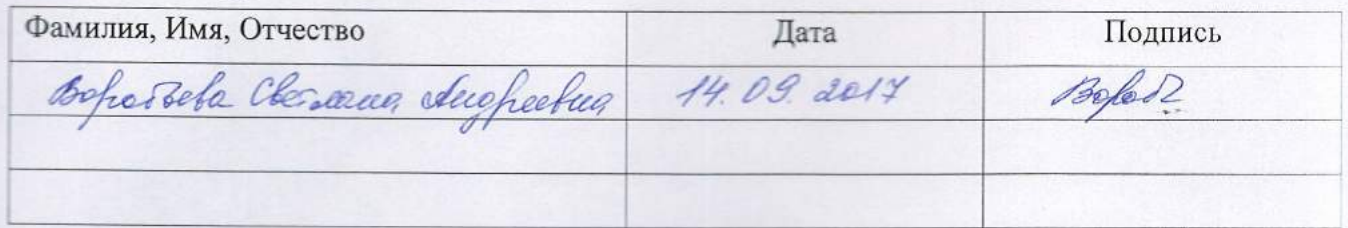 Фамилия, Имя, Отчество Дата Подпись
Воробьева Светлана Андреевна 14.09.2017 Вороб